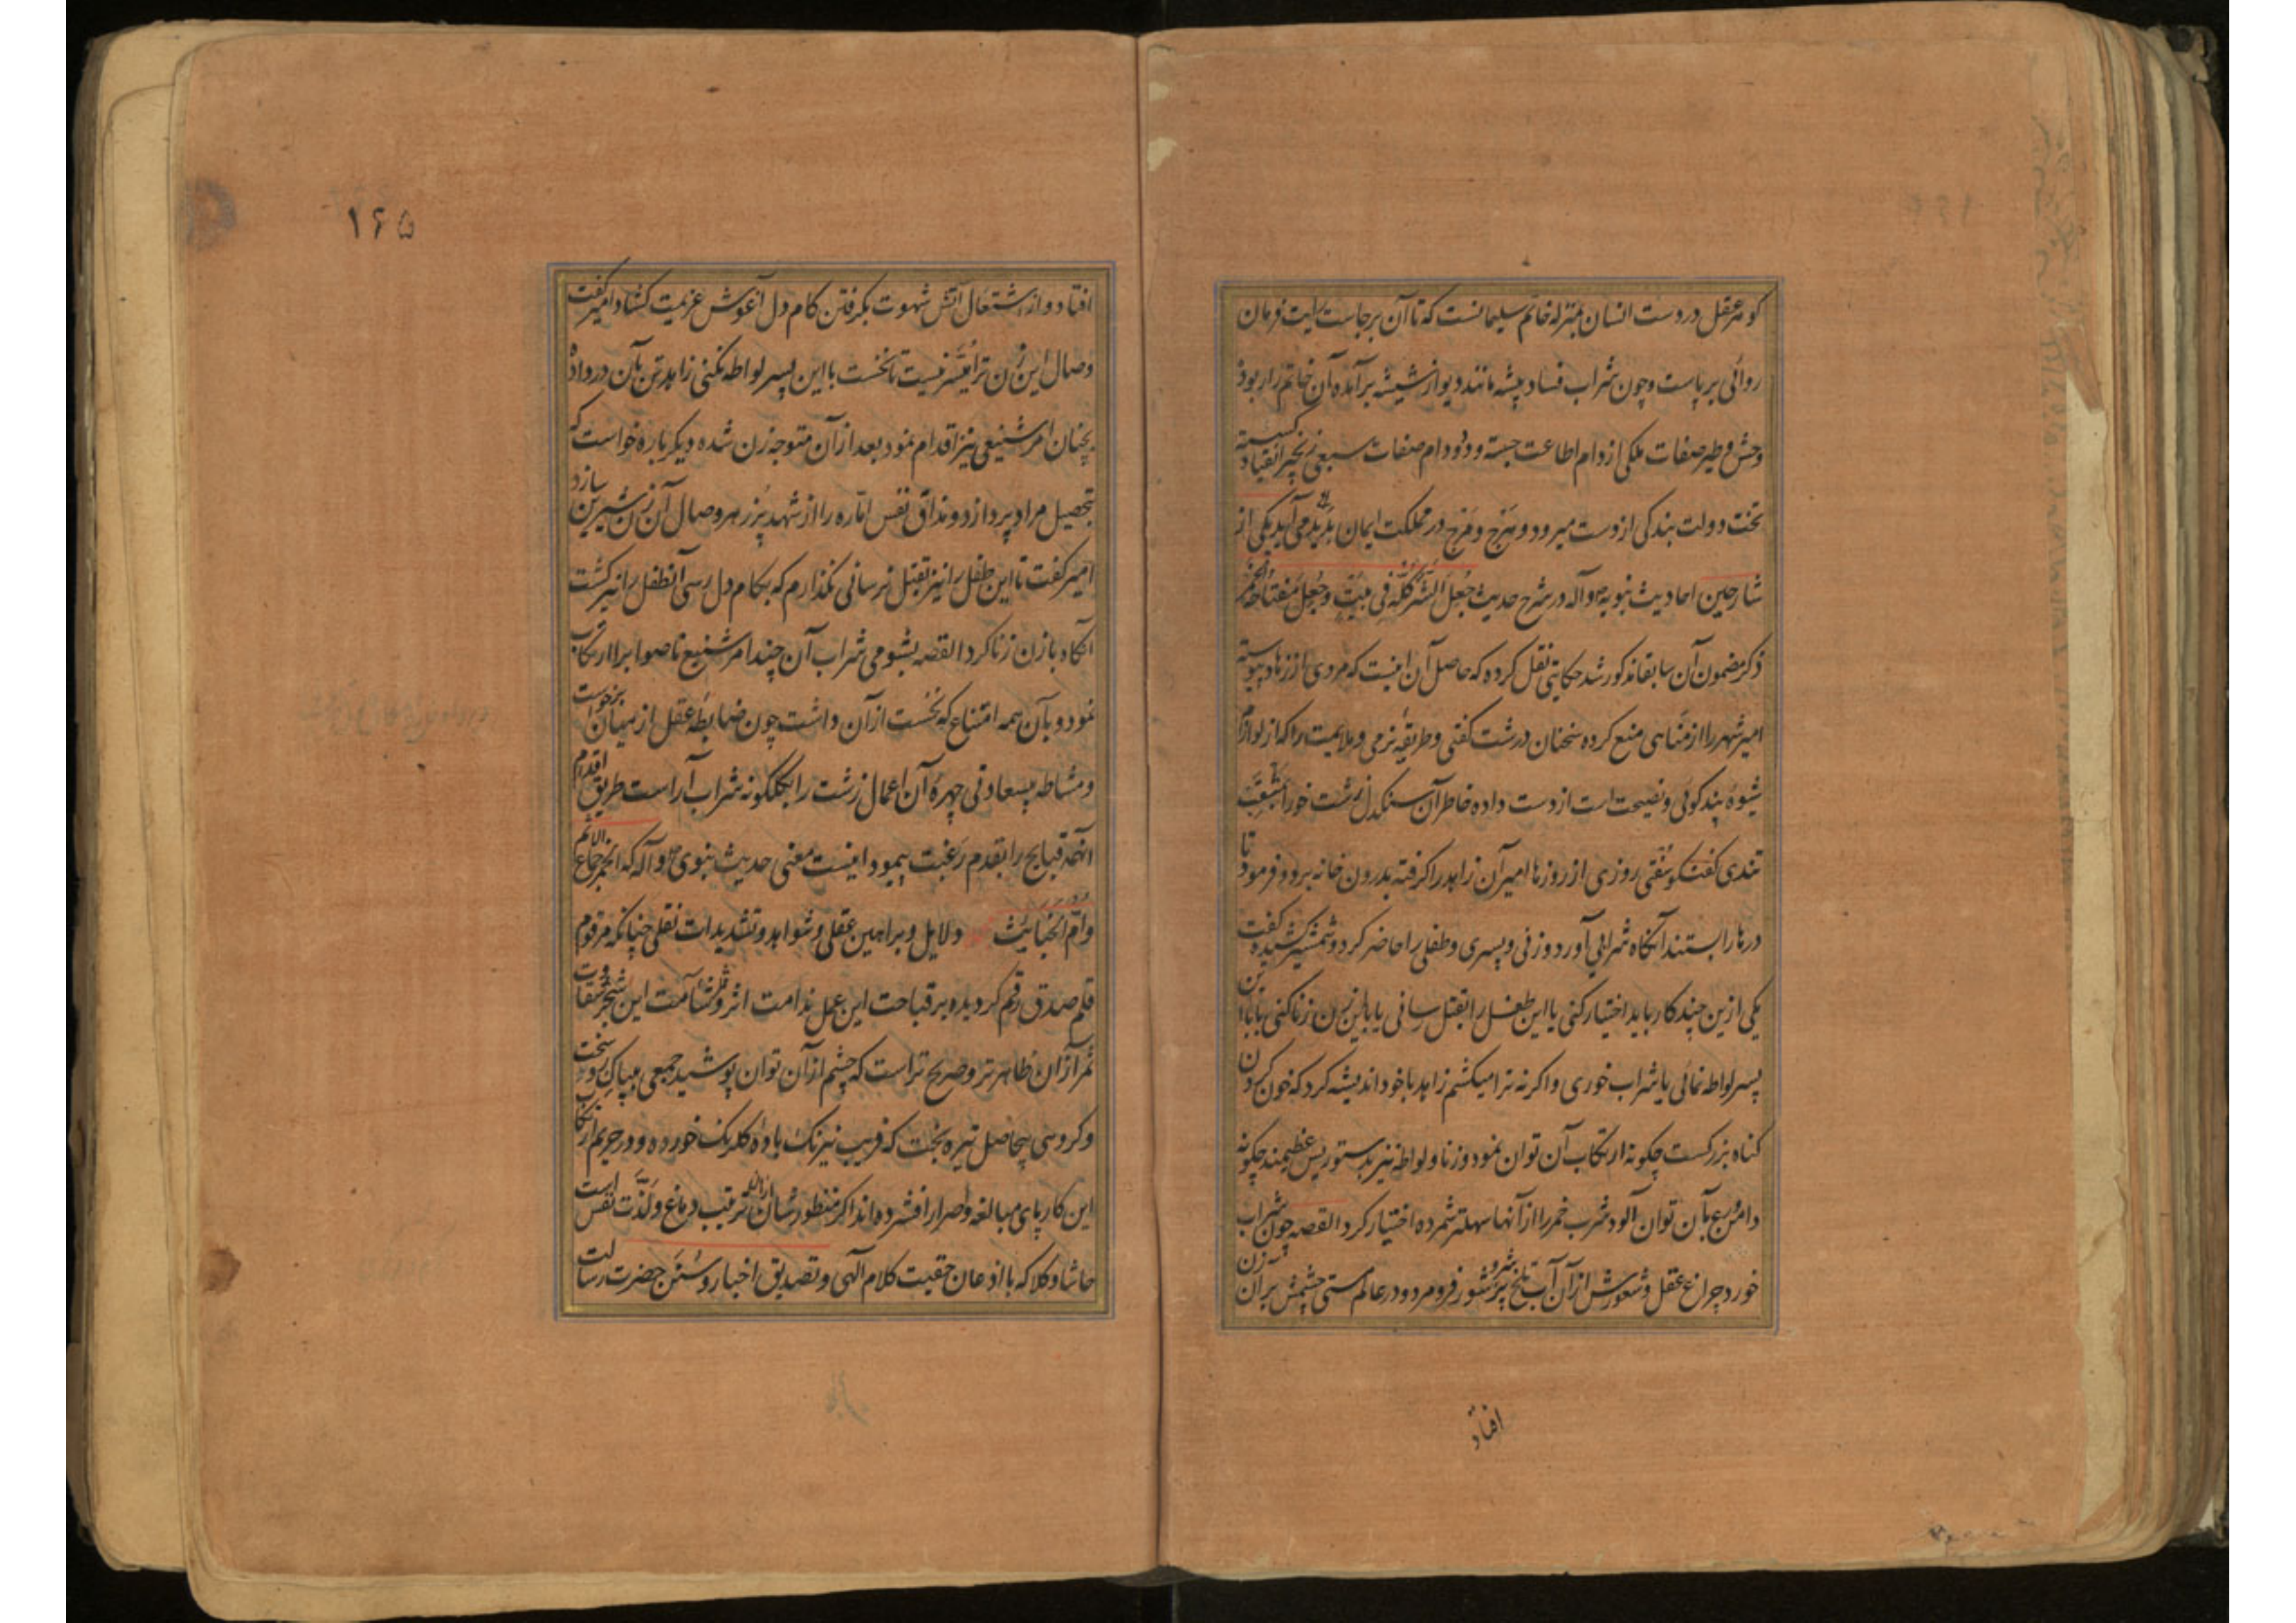 گوهر عقل در دست انسان بمنزله خاتم سلیمانست که تا آن برجاست رایت فرمان
روائی برپاست و چون شراب فساد پیشه مانند دیو از شیشه برآمده آن خاتم را ربود
وحش و طیر صفات ملکی از دام اطاعت جسته و دد و دام صفات سبعی زنجیر انقیاد گسیخته
تخت دولت بندگی از دست میرود و هرج و مرج در مملکت ایمان پدید می آید یکی از
شارحین احادیث نبویه ص وآله در شرح حدیث جُعِلَ الشَّرُّ کُلُّهُ فِی بَیْتٍ وَ جُعِلَ مِفْتَاحُهُ الْخَمْرَ
ذکر مضمون آن سابقا مذکور شد حکایتی نقل کرده که حاصل آن اینست که مردی از زهاد پیوسته
امیر شهر را از مناهی منع کرده سخنان درشت گفتی و طریقه نرمی و ملایمت را که از لوازم
شیوه پند گوئی و نصیحت است از دست داده خاطر آن سنگدل زشت خو را
تندی گفتگو سُفتی روزی از روزها امیر آن زاهد را گرفته بدرون خانه برد و فرمود تا
درها را بستند آنگاه شرابی آورد و زنی و پسری و طفلی را حاضر کرد و شمشیر کشیده گفت
یکی ازین چند کار باید اختیار کنی یا این طفل را بقتل رسانی یا با این زن زنا کنی یا با این
پسر لواطه نمائی یا شراب خوری و اگر نه ترا میکشم زاهد با خود اندیشه کرد که خون کردن
گناه بزرگست چگونه ارتکاب آن توان نمود و زنا و لواطه نیز بدستور بس عظیمند چگونه
دامن ورع بآن توان آلود شرب خمر را از آنها سهلتر شمرده اختیار کرد القصه چون شراب
خورد چراغ عقل و شعورش از آن آب تلخ پر شر و شور فرو مرد و در عالم مستی چشمش بر آن زن
افتاد
۱۶۵
افتاد و از اشتعال آتش شهوت بگرفتن کام دل آغوش عزیمت گشاد امیر گفت
وصال این زن ترا میسّر نیست تا نخست با این پسر لواطه نکنی زاهد تن بآن در داده
بچنان امر شنیعی نیز اقدام نمود بعد از آن متوجه زن شده دیگر باره خواست که
بتحصیل مراد پردازد و مذاق نفس اماره را از شهد پُر زهر وصال آن زن شیرین سازد
امیر گفت تا این طفل را نیز بقتل نرسانی نگذارم که بکام دل رسی آن طفل را نیز کشت
آنگاه با زن زنا کرد القصه بشومی شراب آن چند امر شنیع ناصواب را ارتکاب
نمود و بآن همه امتناع که نخست از آن داشت چون ضابطه عقل از میان برخواست
و مشاطه بیسعادتی چهره آن اعمال زشت را بگلگونه شراب آراست طریق اقدام
آنهمه قبایح را بقدم رغبت پیمود اینست معنی حدیث نبوی ص وآله که الخمر جماع الاثم
و اُمّ الخبائث دلایل و براهین عقلی و شواهد و تشدیدات نقلی چنانکه مرقوم
قلم صدق رقم گردیده بر قباحت این عمل ندامت اثر و شآمت این شجر شقاوت
ثمر از آن ظاهرتر و صریح تر است که چشم از آن توان پوشید جمعی بیباک سخت رو
و گروهی بیحاصل تیره بخت که فریب نیرنگ باده گلرنگ خورده و در حریم ارتکاب
این کار پای مبالغه و اصرار افشرده اند اگر منظور شان از آن ترتیب دماغ و لذّت نفس است
حاشا و کلا که با اذعان حقیت کلام الهی و تصدیق اخبار و سُنَن حضرت رسالت